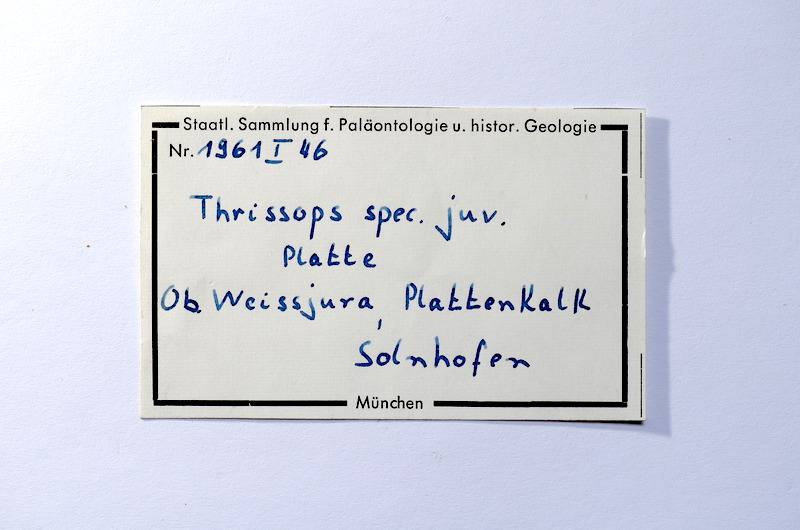 Staatl. Sammlung f. Paläontologie u. histor. Geologie
Nr. 1961 I 46
Thrissops spec. juv.
Platte
Ob. Weissjura, Plattenkalk
Solnhofen
München